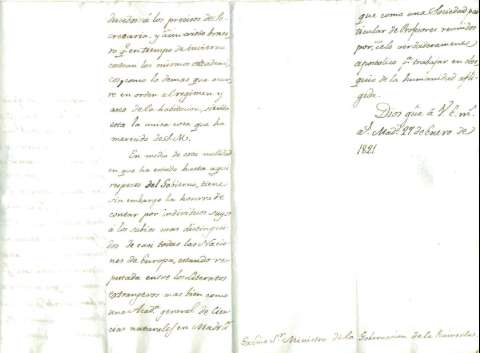 ducidos á los precisos de Se-
cretaria, y á un corto brase-
ro qe. en tiempo de invierno
costean los mismos
como lo demas que ocur-
re en orden al regimen y
aseo de la habitacion, siendo
esta la unica cosa que ha
merecido de S. M.
En medio de esta nulidad
en que ha estado hasta aqui
respecto del Gobierno, tiene
sin embargo la honra de
contar por individuos suyos
a los sabios mas distingui-
dos de casi todas las Nacio-
nes de Europa, estando re-
putada entre los literatos
extrangeros mas bien como
una Acad. general de Cien-
cias naturales en Madrid
que como una Sociedad par-
ticular de Profesores reunidos
por celo verdaderamente
apostolico pa. trabajar en obse-
quio de la humanidad afli-
gida.
Dios gue. á V. E. ms.
as. Madd. 27 de Enero de
1821
Exmo. Sr. Ministro de la Gobernacion de la Peninsula